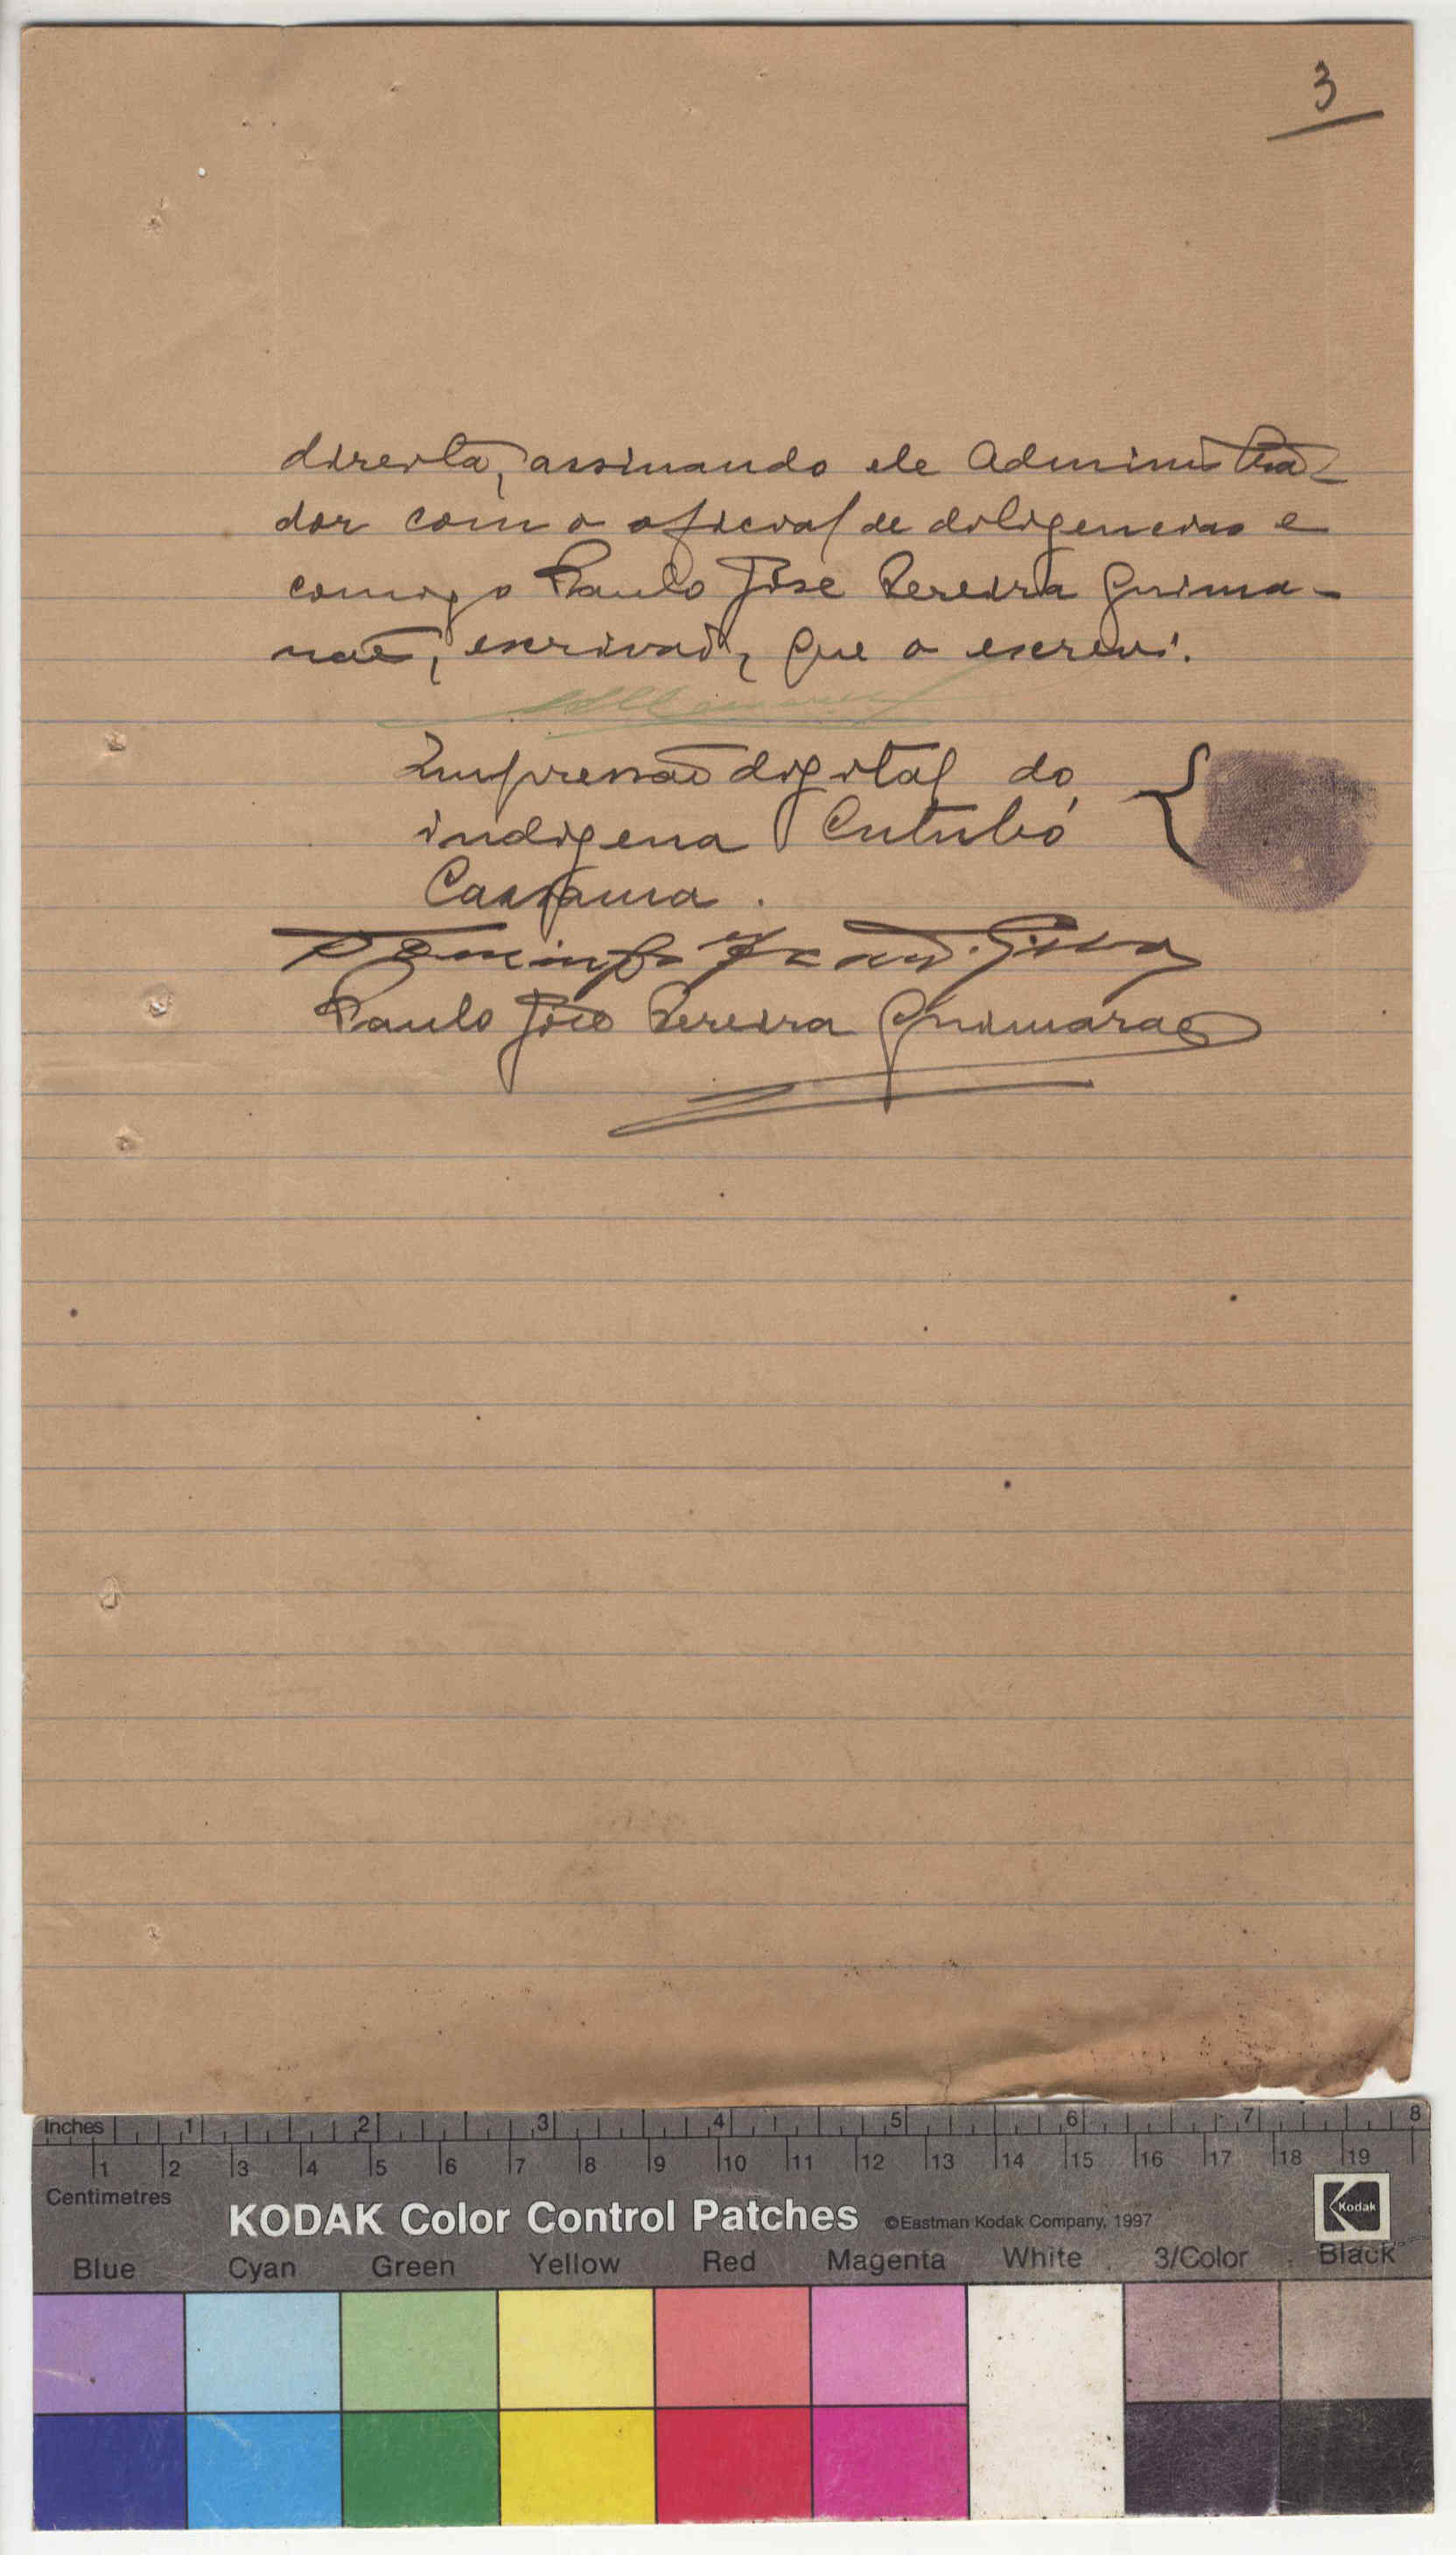 3
direita, assinando ele Administra-
dor com o oficial de diligencias e
comigo Paulo José Pereira Guima-
rães, escrivão, que o escrevi.
Impressão digital do
indigena Cutubó
Cassama.
Domingos
Paulo José Pereira Guimarães
Inches 1 2 3 4 5 6 7 8
1 2 3 4 5 6 7 8 9 10 11 12 13 14 15 16 17 18 19
Centimetres
KODAK Color Control Patches ©Eastman Kodak Company, 1997 Kodak
Blue Cyan Green Yellow Red Magenta White 3/Color Black